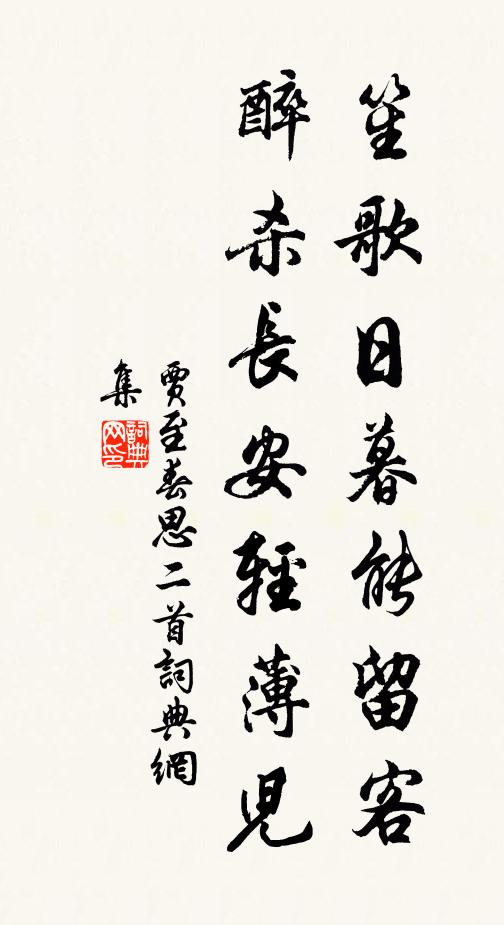 笙歌日暮能留客
醉杀長安輕薄児
賈至春思二首詞典網
集
詞典
网印